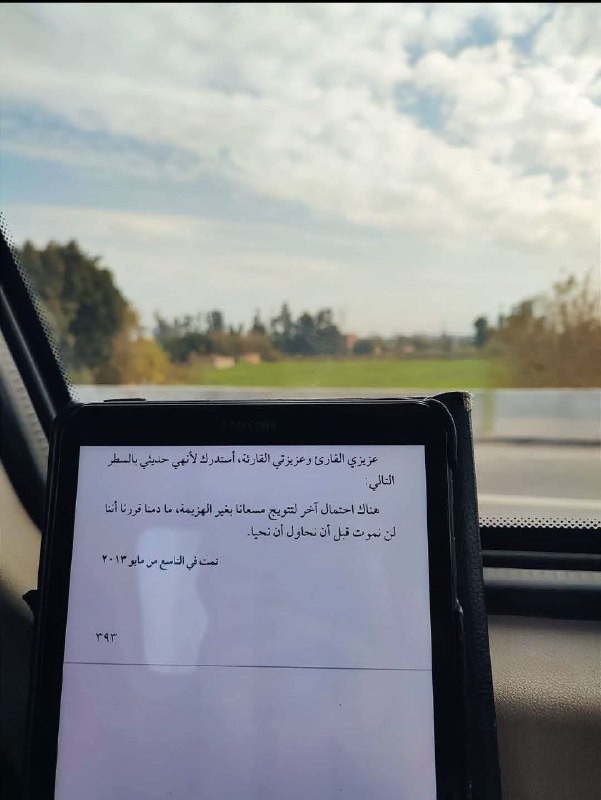 SAMSUNG
عزيزي القارئ وعزيزتي القارئة، أستدرك لأنهي حديثي بالسطر
التالي:
هناك احتمال آخر لتتويج مسعانا بغير الهزيمة، ما دمنا قررنا أننا
لن نموت قبل أن نحاول أن نحيا.
تمت في التاسع من مايو ٢٠١٣
٣٩٣